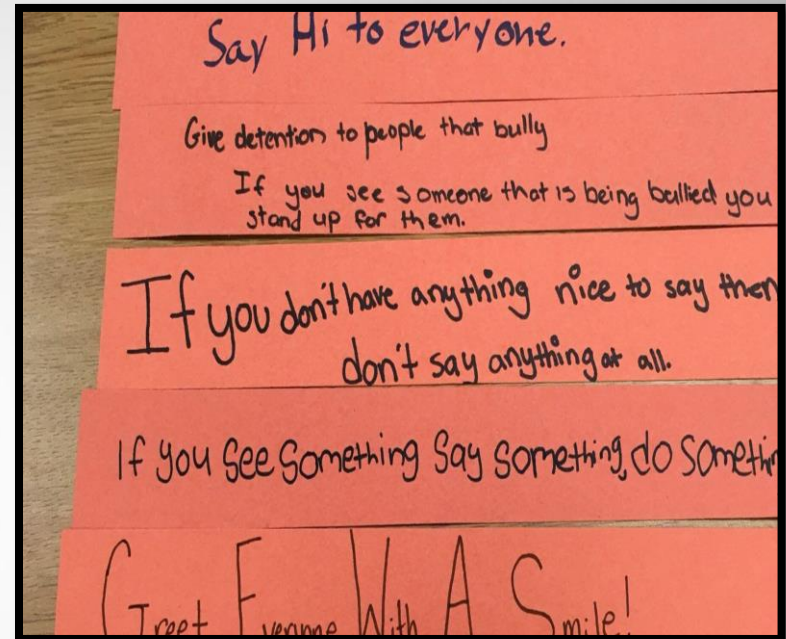 Say Hi to everyone.
Give detention to people that bully
If you see someone that is being bullied you
stand up for them.
If you don't have anything nice to say then
don't say anything at all.
If you see something say something, do somethin
Greet Everyone With A Smile!